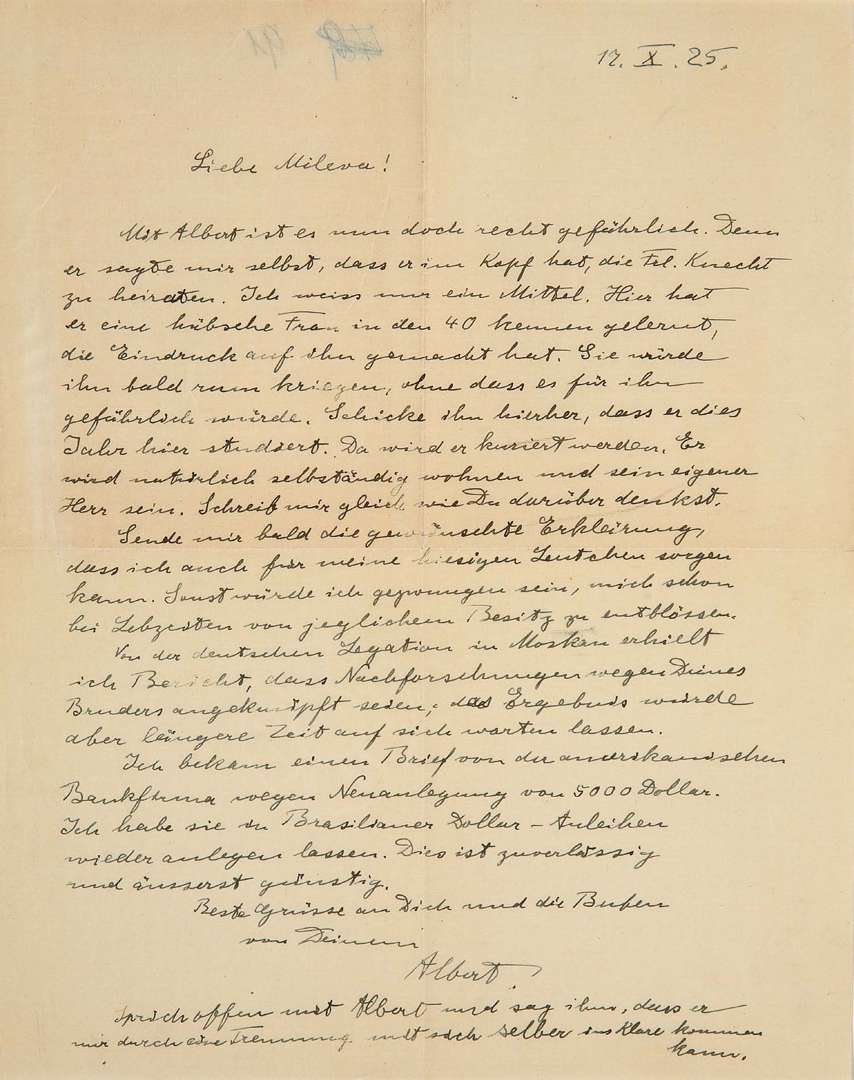 17. X. 25.
Liebe Mileva!
Mit Albert ist es nun doch recht gefährlich. Denn
er sagte mir selbst, dass er im Kopf hat, die Frl. Knecht
zu heiraten. Ich weiss nur ein Mittel. Hier hat
er eine hübsche Frau in den 40 kennen gelernt,
die Eindruck auf ihn gemacht hat. Sie würde
ihn bald rum kriegen, ohne dass es für ihn
gefährlich würde. Schicke ihn hierher, dass er dies
Jahr hier studiert. Da wird er kuriert werden. Er
wird natürlich selbständig wohnen und sein eigener
Herr sein. Schreib mir gleich wie Du darüber denkst.
Sende mir bald die gewünschte Erkleirung,
dass ich auch für meine hiesigen Leutchen sorgen
kann. Sonst würde ich gezwungen sein, mich schon
bei Lebzeiten von jeglichem Besitz zu entblössen.
Von der deutschen Legation in Moskau erhielt
ich Bericht, dass Nachforschungen wegen Deines
Bruders angeknüpft seien; das Ergebnis würde
aber längere Zeit auf sich warten lassen.
Ich bekam einen Brief von der amerikanischen
Bankfirma wegen Neuanlegung von 5000 Dollar.
Ich habe sie in Brasilianer Dollar-Anleihen
wieder anlegen lassen. Dies ist zuverlässig
und äusserst günstig.
Beste Grüsse an Dich und die Buben
von Deinem
Albert.
Sprich offen mit Albert und sag ihm, dass er
nur durch eine Trennung mit sich selber ins Klare kommen
kann.